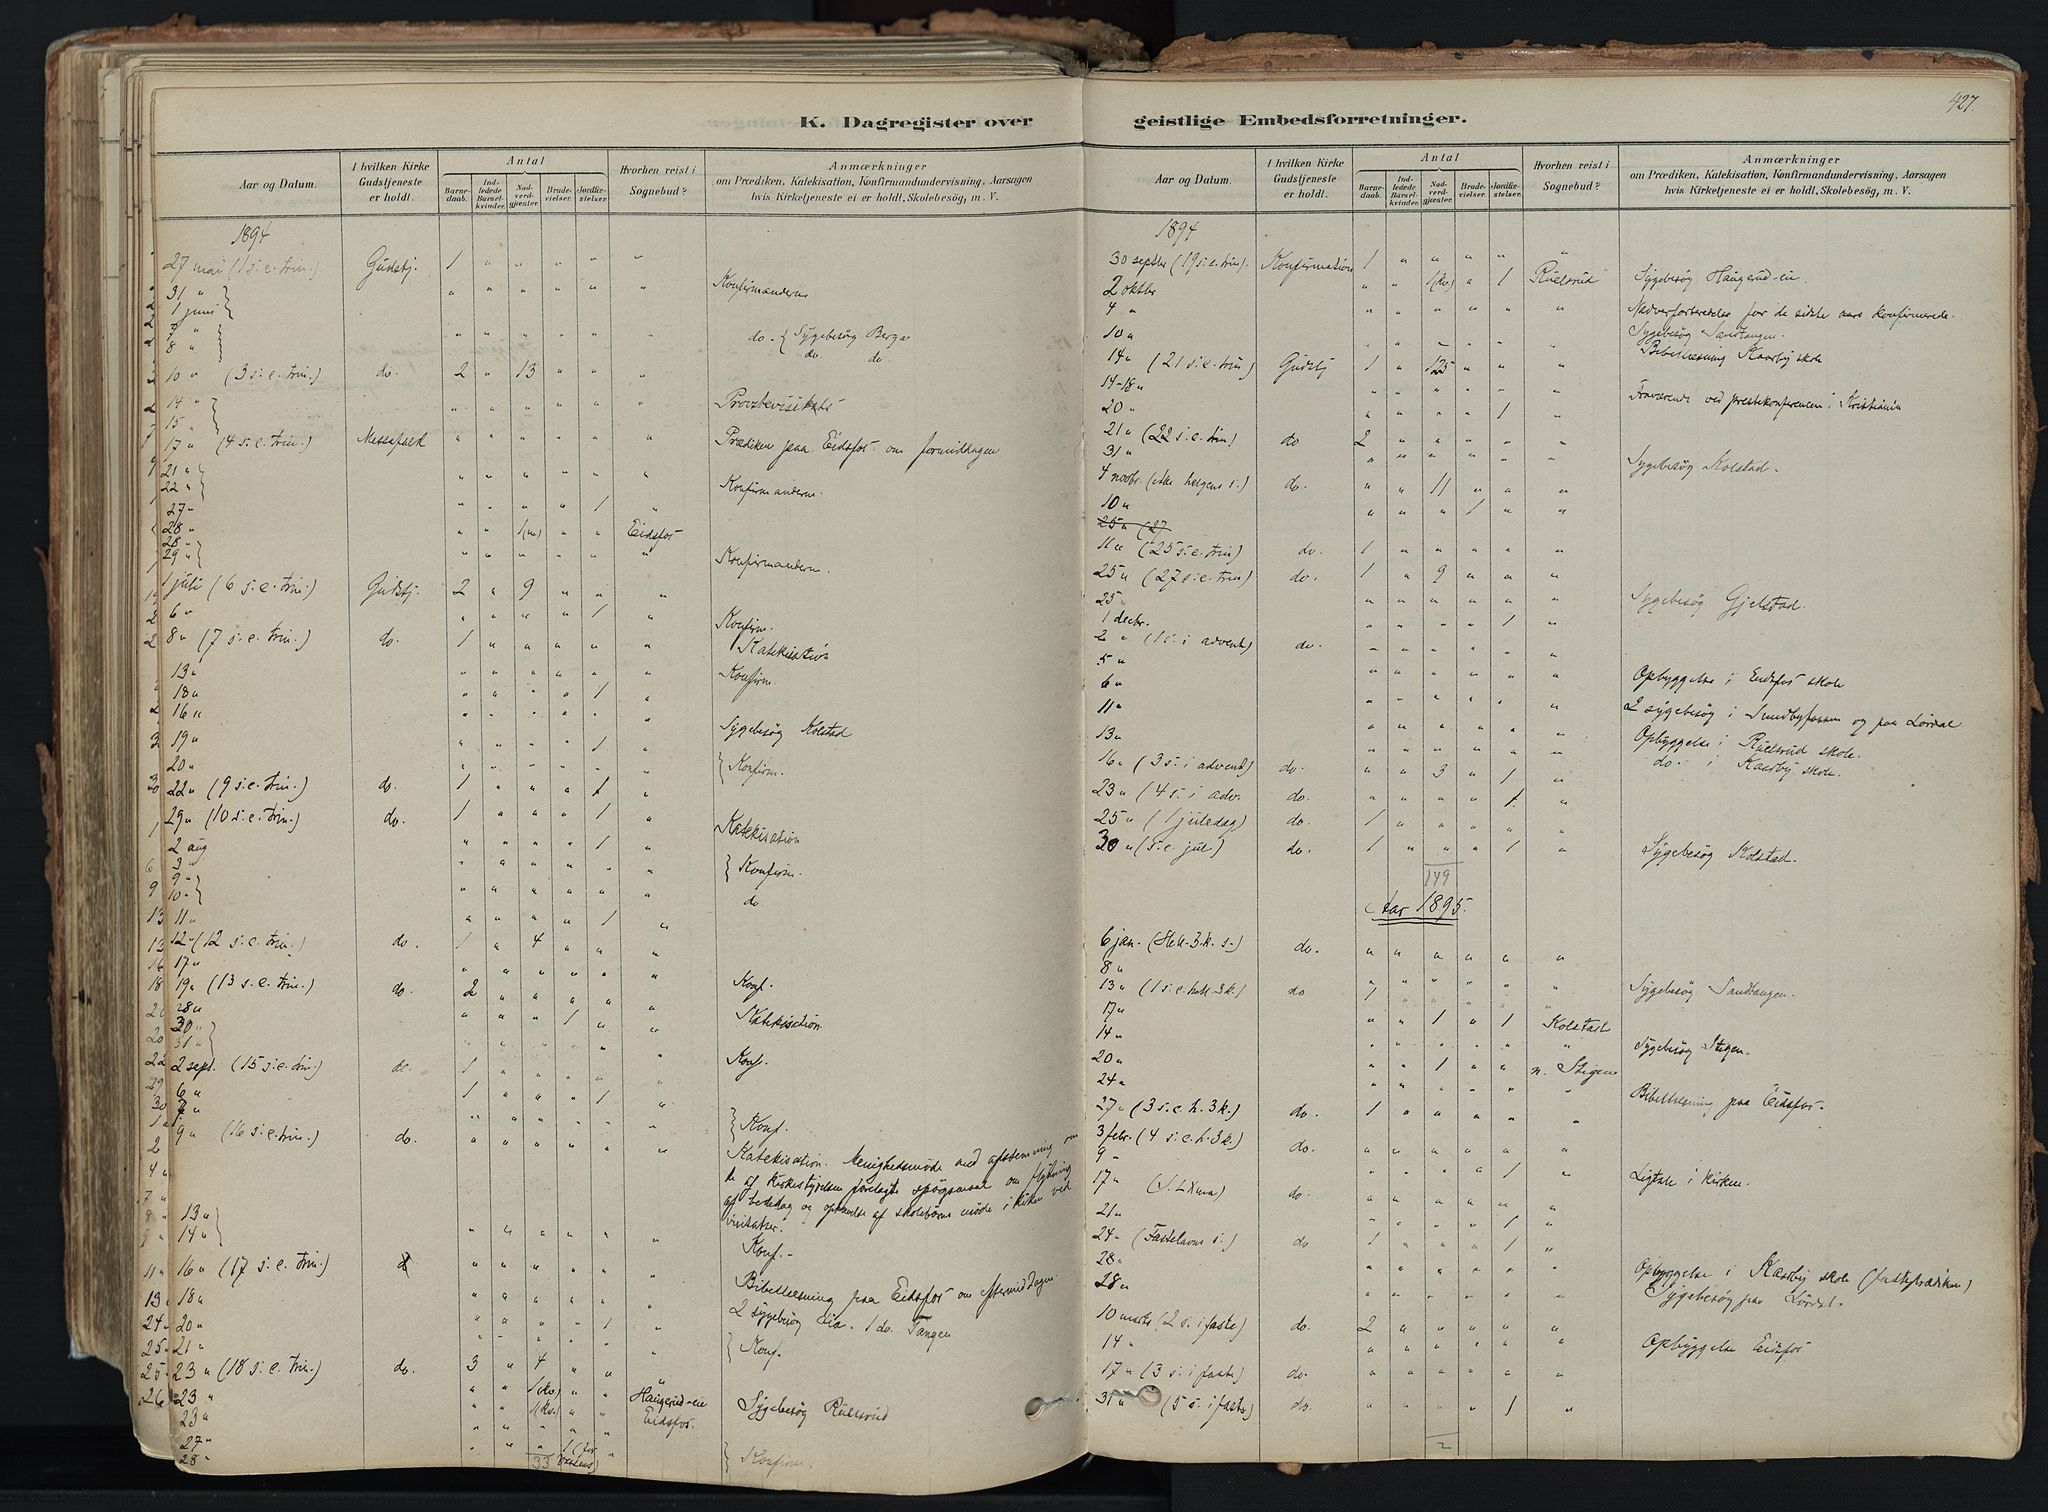 427.
K. Dagregister over
geistlige Embedsforretninger.
Aar og Datum.
I hvilken Kirke Gudstjeneste er holdt.
Antal
Barnedaab.
Indledede Barselkvinder.
Nadverdgjæster.
Brudevielser.
Jordfæstelser.
Hvorhen reist i Sognebud?
Anmærkninger
om Prædiken, Katekisation, Konfirmandundervisning, Aarsagen
hvis Kirketjeneste ei er holdt, Skolebesög, m. V.
1894
27 mai (1 s. e. trin.) Gudstj. 1 " " " " "
31 "
1 juni " " " " " " Konfirmanderne
7 "
8 " " " " " " " do. { Sygebesøg Berga
do. do.
10 " (3 s. e. trin.) do. 2 " 13 " " "
14 "
15 " " " " " " " Provstevisitats
17 " (4 s. e. trin.) Messefald " " " " " " Prædiken paa Eidsfos om formiddagen
21 "
22 " " " " " " " Konfirmanderne.
27 " " " " " 1 "
28 " " " 1(kv) " " Eidsfos
28 "
29 " " " " " " " Konfirmanderne.
1 juli (6 s. e. trin.) Gudstj. 2 " 9 " " "
6 " " " " " 1 " Konfirm.
8 " (7 s. e. trin.) do. 1 " " " " " Katekisation
13 " " " " " " " Konfirm.
18 " " " " " 1 "
16 " " " " " " " Sygebesøg Kolstad
19 " " " " " 1 "
20 " " " " " " " Konfirm.
22 " (9 s. e. trin.) do. 1 " " " 1 "
29 " (10 s. e. trin.) do. 1 " " " 1 " Katekisation
2 aug " " " " 1 "
3 " " " " " " " Konfirm.
9 "
10 " " " " " " " do
11 " " " " " 1 "
12 " (12 s. e. trin.) do. 1 " 4 " " "
17 " " " " " " " Konf.
19 " (13 s. e. trin.) do. 2 " " " " " Katekisation
28 " " " " 1 " "
30 "
31 " " " " " " " Konf.
2 sept. (15 s. e. trin.) do. 1 " " " " "
6 " 1 " " " 1 "
7 " " " " " " " Konf.
9 " (16 s. e. trin.) do. " " " " " " Katekisation. Menighedsmøde med afstemning om
de af kirkestyrelsen forelagte spøgsmaal om flytning
af bededag og ophævelse af skolebørns møde i kirken ved
visitatser.
13 "
14 " " " " " " " Konf.
16 " (17 s. e. trin.) " " " " " " Bibellæsning paa Eidsfos om eftermiddagen
18 " " " " " " " 2 sygebesøg Lia. 1 do. Tangen
20 " " " " " 1 "
21 " " " " " " " Konf.
23 " (18 s. e. trin.) do. 3 " 4 " " "
23 " " " 1(kv) " " Haugerud-eie Sygebesøg Ruelsrud
23 " " " 1(kv.) " " Eidsfos.
27 " " " " 1
28 " 33 Konfirm.
Aar og Datum.
I hvilken Kirke Gudstjeneste er holdt.
Antal
Barnedaab.
Indledede Barselkvinder.
Nadverdgjæster.
Brudevielser.
Jordfæstelser.
Hvorhen reist i Sognebud?
Anmærkninger
om Prædiken, Katekisation, Konfirmandundervisning, Aarsagen
hvis Kirketjeneste ei er holdt, Skolebesög, m. V.
1894
30 septbr (19 s. e. trin). Konfirmation 1 " " " " "
2 oktbr " " 1(kv) " 1 Ruelsrud Sygebesøg Haugerud-eie.
4 " " " " " " " Nadverforberedelse for de sidste aars konfirmerede.
10 " " " " " " " Sygebesøg Sandtangen.
Bibellæsning Kaasby skole
14 " (21 s. e. trin) Gudstj 1 " 125 " " "
14-18 " " " " " " " Fraværende ved prestekonferencen i Kristiania
20 " " " " " 1 "
21 " (22 s. e. trin) do 2 " " " " "
31 " " " " " " " Sygebesøg Kolstad.
4 novbr. (alle helgens s.) do. " " 11 " " "
10 " " " " 1 " "
25 " (27
11 " (25 s. e. trin) do. 1 " " " " "
25 " (27 s. e. trin) do. 1 " 9 " " "
25 " " " " " " " Sygebesøg Gjelstad.
1 decbr. " " " " 1 "
2 " (1 s. i advent) do. " " " " " "
5 " " " " " " " Opbyggelse i Eidsfos skole
6 " " " " " " " 2 sygebesøg i Sundbyfossen og paa Lørdal
11 " " " " " " " Opbyggelse i Ruelsrud skole.
13 " " " " " " " do. i Kaasby skole.
16 " (3 s. i advent) do. " " 3 " 1 "
23 " (4 s. i adv. do. " " " " 1 "
25 " (1 juledag) do. 1 " " " " "
30 " (s. e. jul) do. 1 " " " 1 " Sygebesøg Kolstad.
149
Aar 1895.
6 jan. (Hell. 3. k. s.) do. " " " " " "
8 " " " " " " " Sygebesøg Sandtangen.
13 " (1 s. e. hell. 3 k.) do 1 " " " " "
17 " " " 1 " 1 Kolstad
14 " " " " " " " Sygebesøg Stigen.
20 " " " 1 " " n. Stigen
24 " " " " " " " Bibellæsning paa Eidsfos.
27 " (3 s. e. h. 3 k.) do. 1 " " " " "
3 febr. (4 s. e. h. 3 k.) do. " " " " " "
9 " " " " " 1 " Ligtale i kirken.
17 " (S. LXma) do. " " " " " "
21 " " " " " 1 "
24 " (Fastelavns s.) do 1 " " " 1 "
28 " " " " " " " Opbyggelse i Kaasby skole (fasteprædiken)
28 " " " " " " " Sygebesøg paa Lørdal.
10 marts (2 s. i faste) do. 2 " " " " "
14 " " " " " " " Opbyggelse Eidsfos
17 " (3 s. i faste) do. " " " " " "
31 " (5 s. i faste) do. " " " " 1 "
2